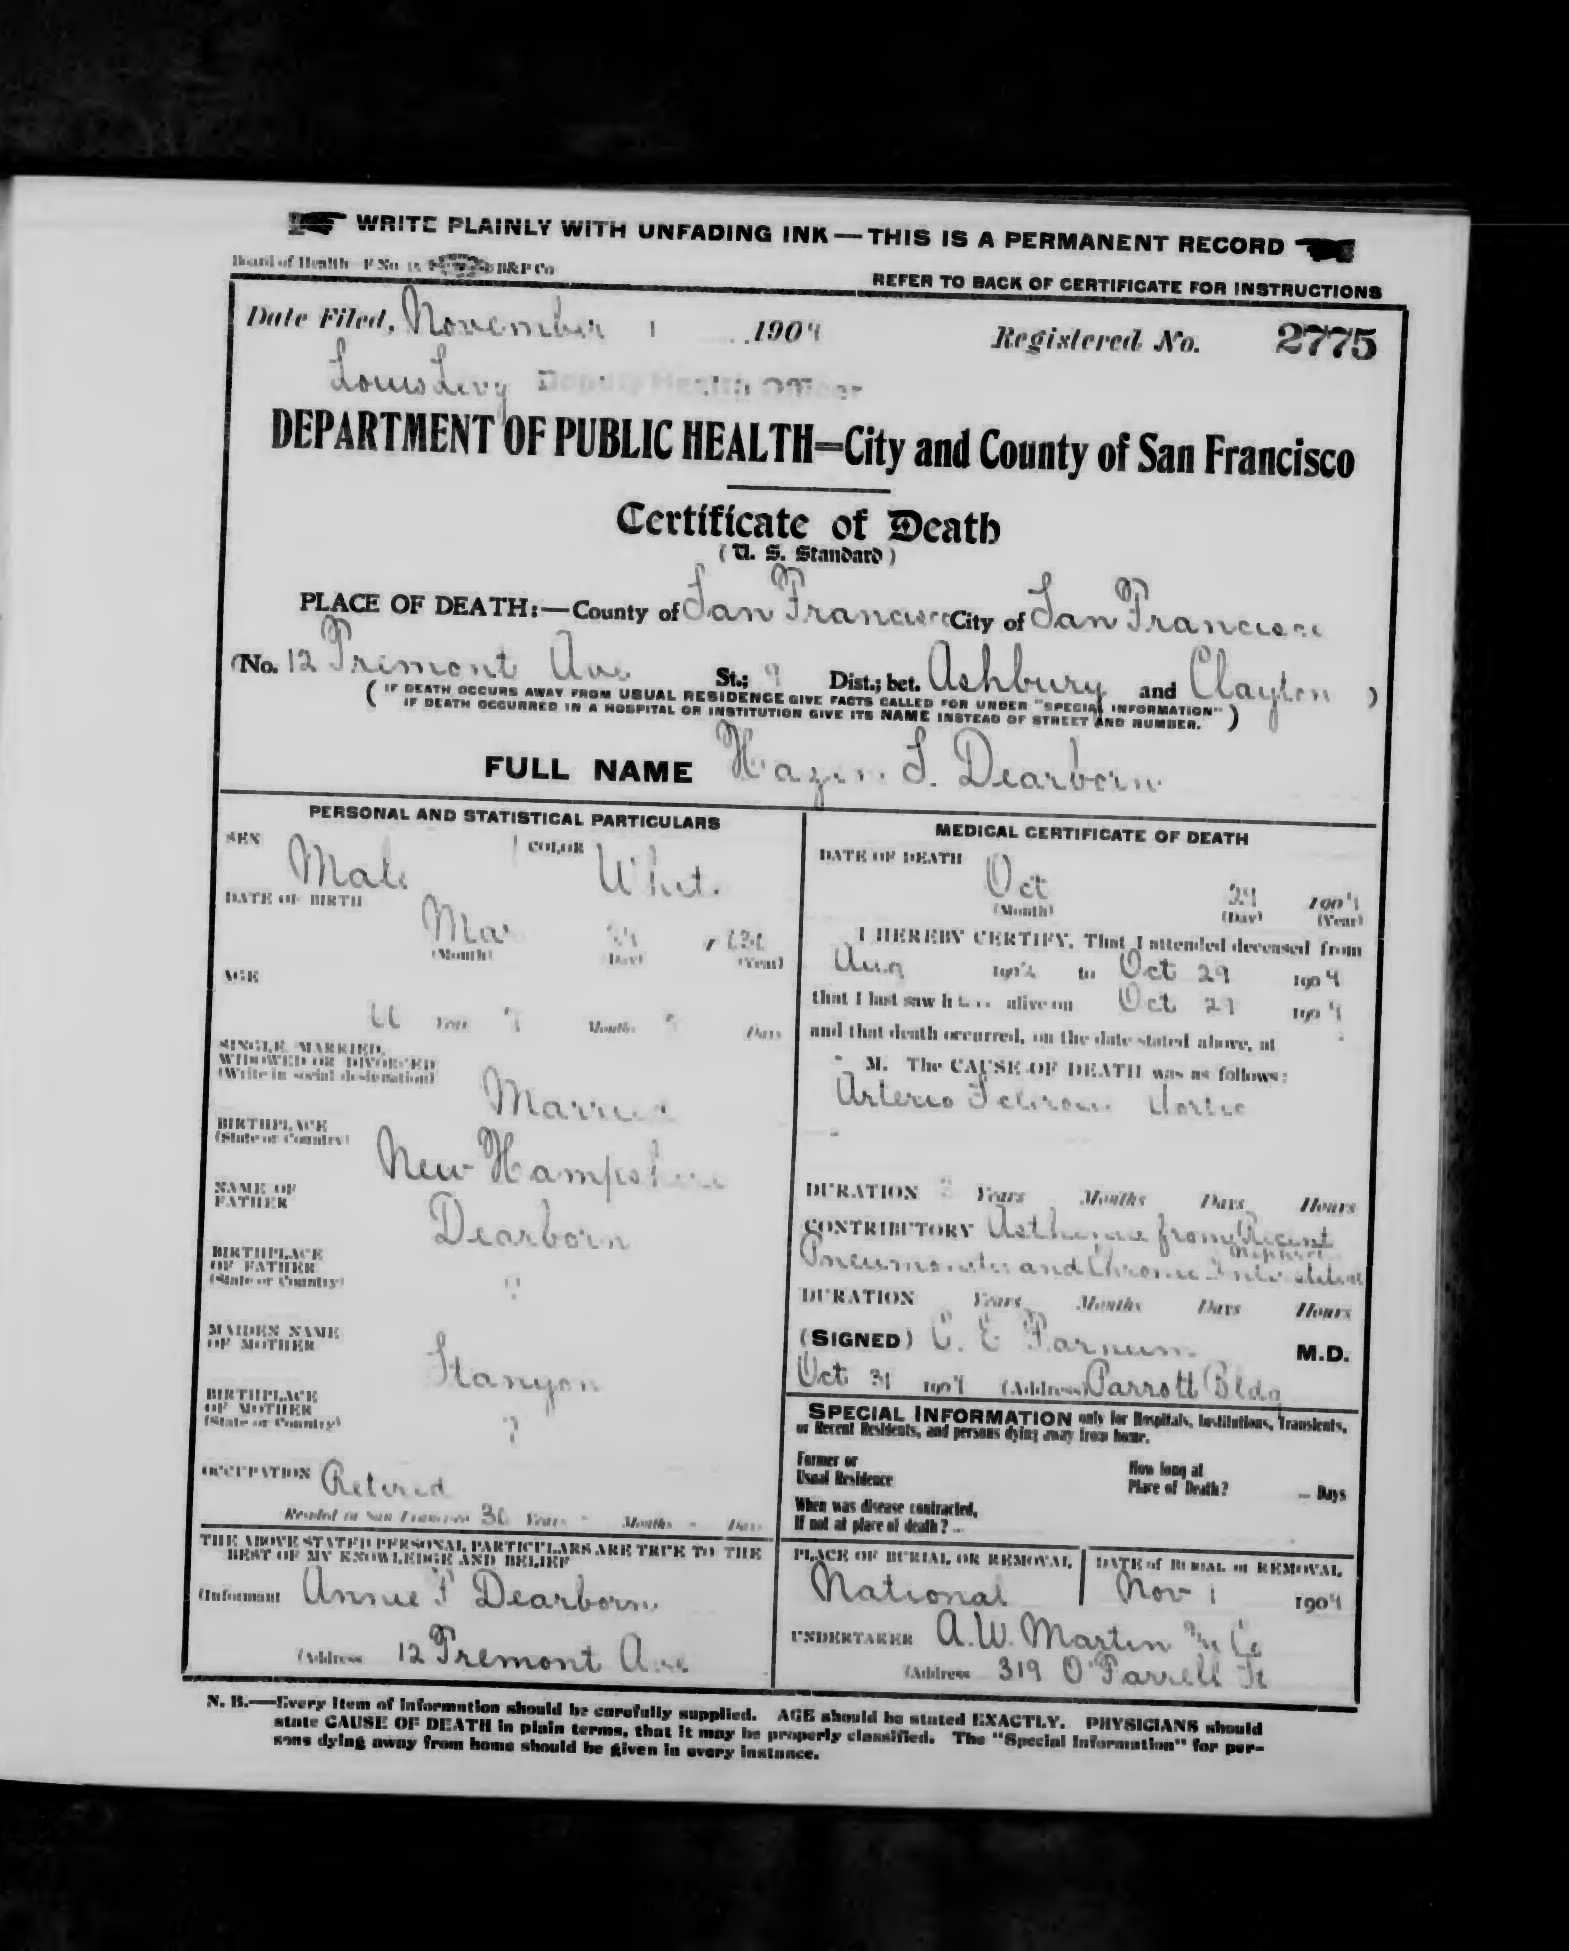 WRITE PLAINLY WITH UNFADING INK—THIS IS A PERMANENT RECORD
Board of Health—F No. 15 B&P Co
REFER TO BACK OF CERTIFICATE FOR INSTRUCTIONS
Date Filed, November 1 1904 Registered No. 2775
Louis Levy Deputy Health Officer
DEPARTMENT OF PUBLIC HEALTH=City and County of San Francisco
Certificate of Death
(U. S. Standard)
PLACE OF DEATH:—County of San Francisco City of San Francisco
(No. 12 Tremont Ave St.; 9 Dist.; bet. Ashbury and Clayton )
( IF DEATH OCCURS AWAY FROM USUAL RESIDENCE GIVE FACTS CALLED FOR UNDER "SPECIAL INFORMATION"
IF DEATH OCCURRED IN A HOSPITAL OR INSTITUTION GIVE ITS NAME INSTEAD OF STREET AND NUMBER. )
FULL NAME Hazen S. Dearborn
PERSONAL AND STATISTICAL PARTICULARS
SEX Male COLOR White
DATE OF BIRTH Mar
(Month) (Day) (Year)
AGE
Years 7 Months Days
SINGLE, MARRIED,
WIDOWED OR DIVORCED
(Write in social designation) Married
BIRTHPLACE
(State or Country) New Hampshire
NAME OF
FATHER Dearborn
BIRTHPLACE
OF FATHER
(State or Country) ?
MAIDEN NAME
OF MOTHER Stanyon
BIRTHPLACE
OF MOTHER
(State or Country) ?
OCCUPATION Retired
Resided in San Francisco 30 Years - Months - Days
THE ABOVE STATED PERSONAL PARTICULARS ARE TRUE TO THE
BEST OF MY KNOWLEDGE AND BELIEF
(Informant Annie F Dearborn
(Address 12 Tremont Ave
MEDICAL CERTIFICATE OF DEATH
DATE OF DEATH Oct 29 1904
(Month) (Day) (Year)
I HEREBY CERTIFY, That I attended deceased from
Aug 190 to Oct 29 1904
that I last saw him alive on Oct 29 1904
and that death occurred, on the date stated above, at
- M. The CAUSE OF DEATH was as follows:
Arterio Sclerosis Aortic
DURATION Years Months Days Hours
CONTRIBUTORY Asthenia from Recent
Nephritis
Pneumonitis and Chronic Interstitial
DURATION Years Months Days Hours
(SIGNED) C. E. Farnum M.D.
Oct 31 1904 (Address) Parrott Bldg
SPECIAL INFORMATION only for Hospitals, Institutions, Transients,
or Recent Residents, and persons dying away from home.
Former or
Usual Residence
How long at
Place of Death? ... Days
When was disease contracted,
If not at place of death? ...
PLACE OF BURIAL OR REMOVAL DATE of BURIAL or REMOVAL
National Nov 1 1904
UNDERTAKER A.W. Martin & Co
(Address 319 O'Farrell St
N. B.—Every item of information should be carefully supplied. AGE should be stated EXACTLY. PHYSICIANS should
state CAUSE OF DEATH in plain terms, that it may be properly classified. The "Special Information" for per-
sons dying away from home should be given in every instance.